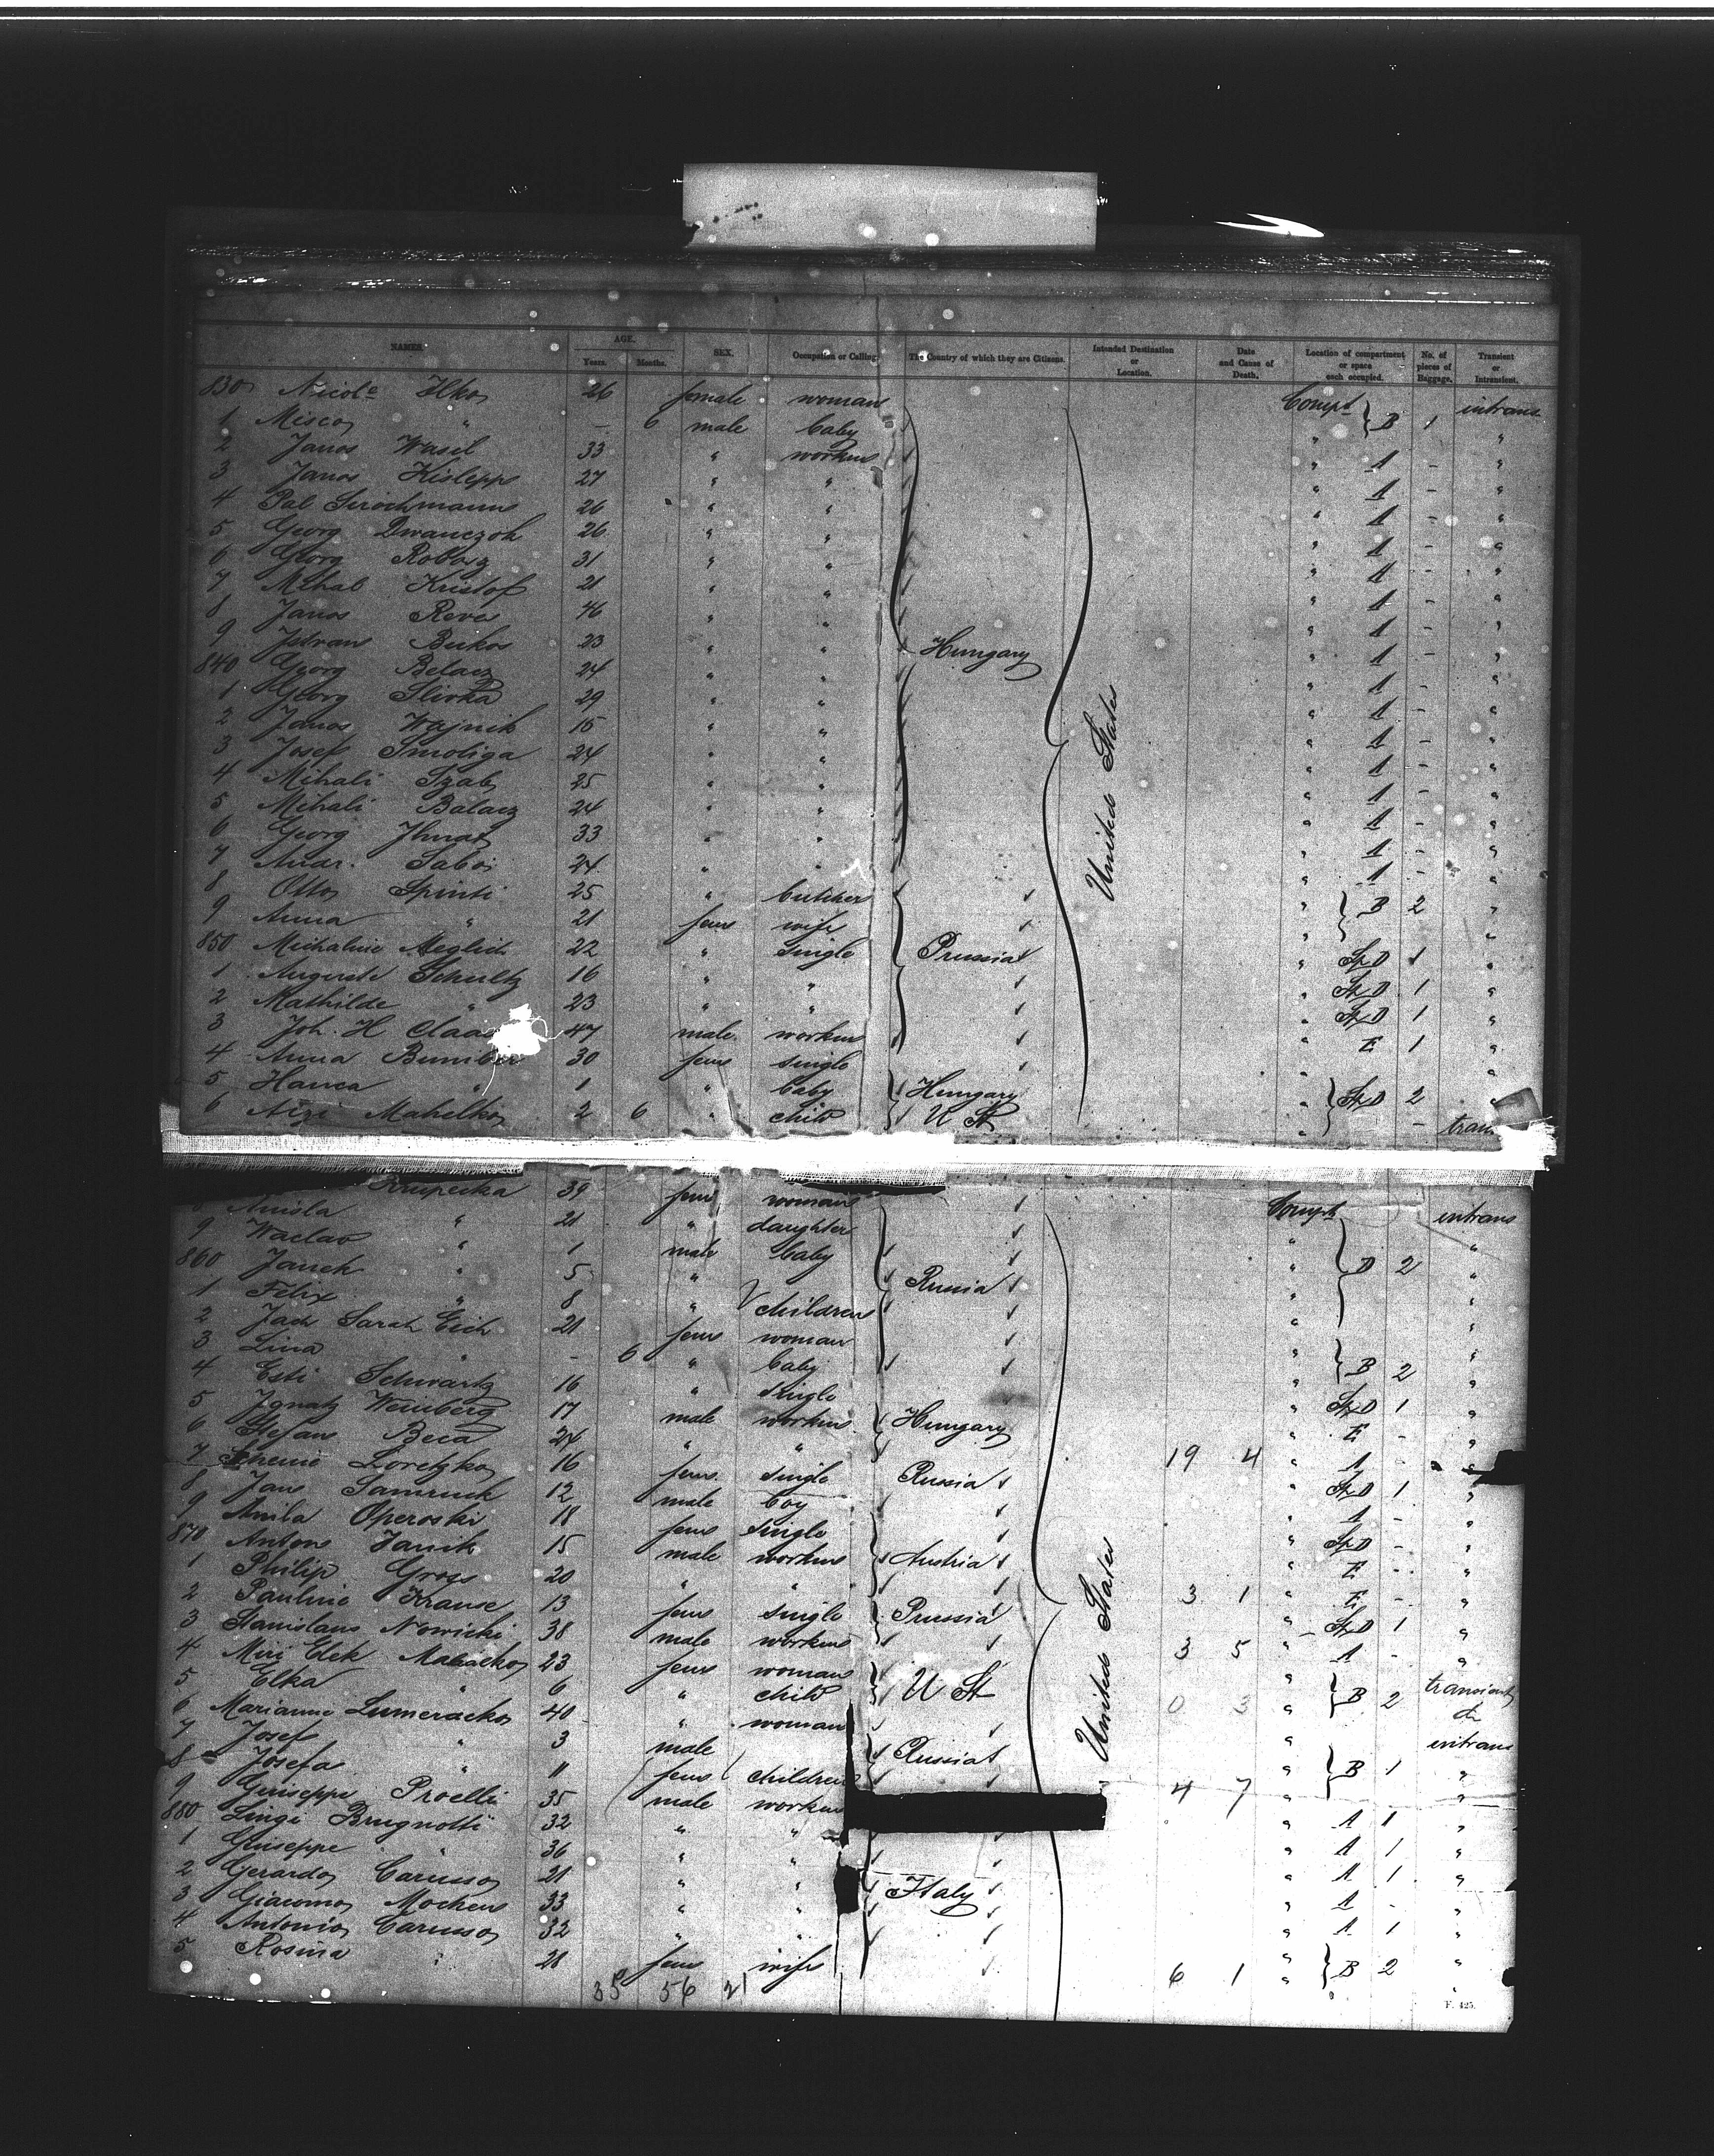 NAMES. AGE. Years. Months. SEX. Occupation or Calling. The Country of which they are Citizens. Intended Destination or Location. Date and Cause of Death. Location of compartment or space each occupied. No. of pieces of Baggage. Transient or Intransient.
830 Nicola Ilko 26 female woman Compt B 1 intrans
1 Misco " - 6 male baby " "
2 Janos Wasil 33 " workers " A - "
3 Janos Kislepp 27 " " " A - "
4 Pal 26 " " " A - "
5 Georg 26 " " " A - "
6 Georg 31 " " " A - "
7 Mihal Kristof 21 " " " A - "
8 Janos 46 " " " A - "
9 Istvan 23 " " Hungary " A - "
840 Georg Belacz 24 " " " A - "
1 Georg Slivka 29 " " United States " A - "
2 Janos Wajnik 15 " " " A - "
3 Josef Smoliga 24 " " " A - "
4 Mihali Szabo 25 " " " A - "
5 Mihali Balacz 24 " " " A - "
6 Georg Ihnat 33 " " " A - "
7 Andr. Sabo 24 " " " A - "
8 Otto Spinti 25 " butcher " B 2 "
9 Anna " 21 fem wife " "
850 Michaline Meglich 22 " single Prussia " St D 1 "
1 Auguste Schultz 16 " " " St D 1 "
2 Mathilde " 23 " " " St D 1 "
3 Joh. H Claas 47 male worker " E 1 "
4 Anna 30 fem single " "
5 Hanca " 1 " baby Hungary " St D 2 "
6 Mahelko 2 6 " child U St " - trans
Krupecka 39 fem woman Compt intrans
8 Aniela " 21 " daughter " "
9 Waclav " 1 male baby " D 2 "
860 Janek " 5 " Russia " "
1 Felix " 8 " children " "
2 Sarah 21 fem woman " "
3 Lina " - 6 " baby " B 2 "
4 Esti Schwartz 16 " single " St D 1 "
5 Ignatz Weinberg 17 male workers Hungary " E - "
6 Stefan Beca 24 " " 19 4 " A - "
7 Loretzko 16 fem single Russia " St D 1 "
8 Jan 12 male boy " A - "
9 Anila Operoski 18 fem single " St D - "
870 Anton Janik 15 male workers Austria " E - "
1 Philip Gross 20 " " 3 1 " E - "
2 Pauline Krause 13 fem single Prussia United States " St D 1 "
3 Stanislaus Nowicki 38 male workers 3 5 " A - "
4 Miri Elek 23 fem woman U St " B 2 transient
5 Elka " 6 " child 0 3 " do
6 Marianne 40 " woman " intrans
7 Josef " 3 male Russia " B 1 "
8 Josefa " 11 fem children 4 7 " "
9 Guiseppe Proelli 35 male workers " A 1 "
880 Luigi Brugnotti 32 " " " A 1 "
1 Guiseppe " 36 " " " A 1 "
2 Gerardo Carusso 21 " " Italy " A - "
3 Giacomo 33 " " " A 1 "
4 Antonio Carusso 32 " " " B 2 "
5 Rosina " 28 fem wife 6 1 " "
35 56 21
F. 425.